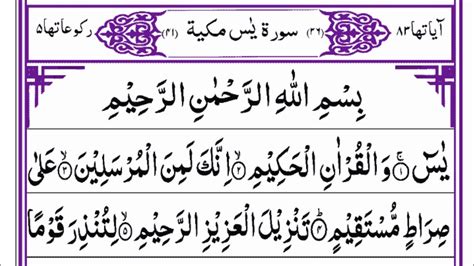 آیاتها ۸۳ (۳۶) سورة یٰسٓ مکیة (۴۱) رکوعاتها ۵
بِسْمِ اللّٰهِ الرَّحْمٰنِ الرَّحِیْمِ
یٰسٓ ۚ﴿۱﴾ وَ الْقُرْاٰنِ الْحَكِیْمِ ۙ﴿۲﴾ اِنَّكَ لَمِنَ الْمُرْسَلِیْنَ ۙ﴿۳﴾ عَلٰی
صِرَاطٍ مُّسْتَقِیْمٍ ؕ﴿۴﴾ تَنْزِیْلَ الْعَزِیْزِ الرَّحِیْمِ ۙ﴿۵﴾ لِتُنْذِرَ قَوْمًا